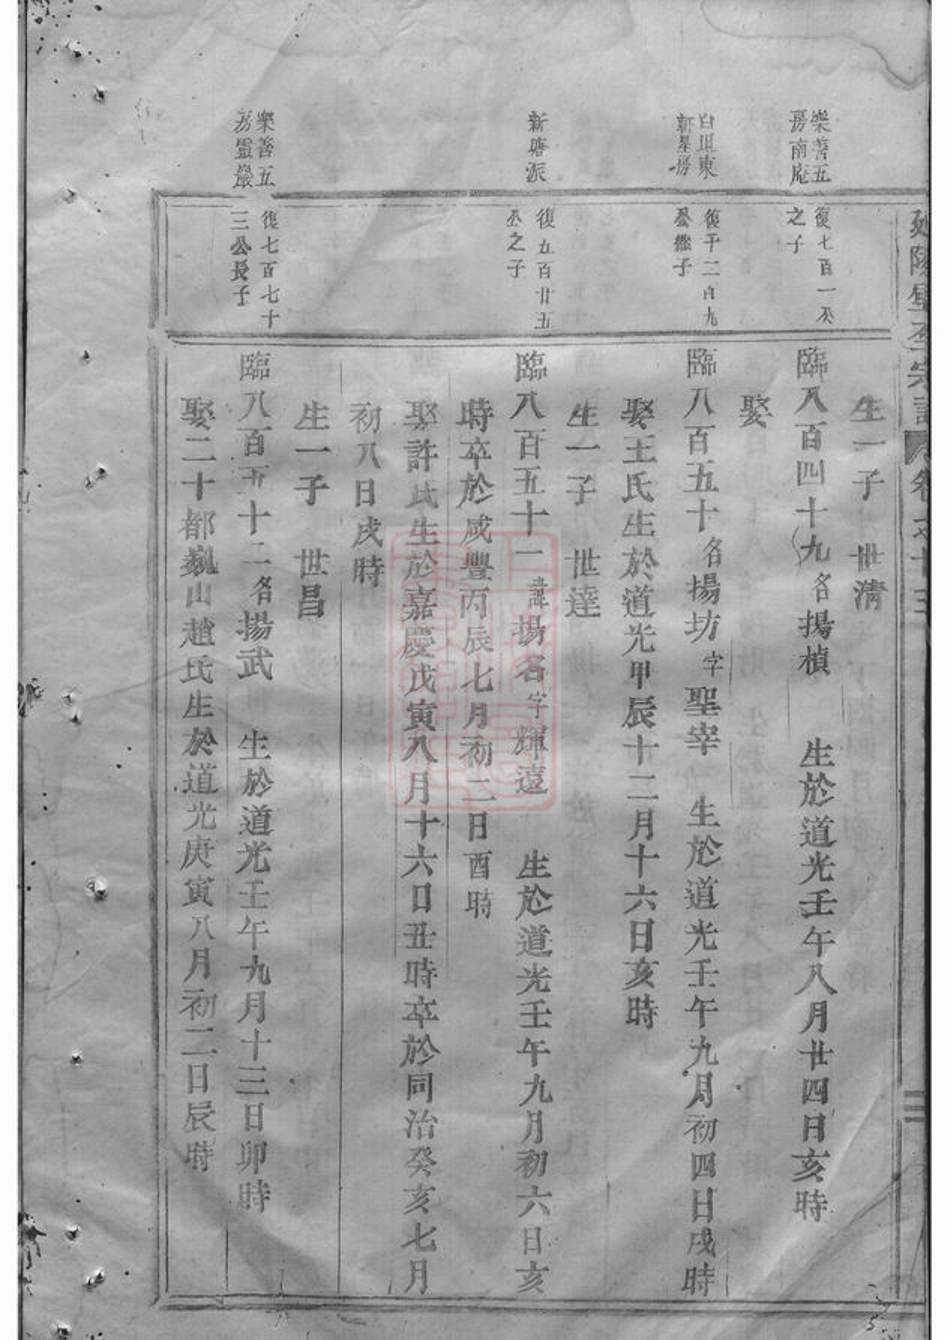 生一子 世清
樂善五
房南庵
復七百一公
之子
臨八百四十九名揚楨 生於道光壬午八月廿四日亥時
娶
白坦東
軒星房
復千二百九
公繼子
臨八百五十名揚坊字聖宰 生於道光壬午九月初四日戌時
娶王氏生於道光甲辰十二月十六日亥時
生一子 世達
新塘派
復五百廿五
公之子
臨八百五十一諱揚名字輝遠 生於道光壬午九月初六日亥
時卒於咸豐丙辰七月初二日酉時
娶許氏生於嘉慶戊寅八月十六日丑時卒於同治癸亥七月
初八日戌時
生一子 世昌
樂善五
房靈巖
復七百七十
三公長子
臨八百五十二名揚武 生於道光壬午九月十三日卯時
娶二十都巍山趙氏生於道光庚寅八月初二日辰時